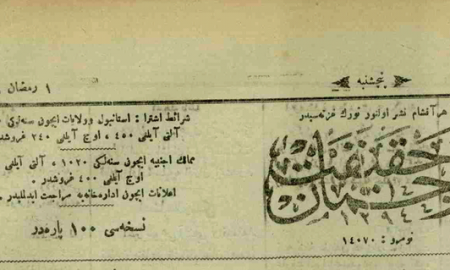 پنجشنبه
١ رمضان
هر آقشام نشر اولنور تورك غزته‌سیدر
ترجمان حقیقت
١٢٩٤
نومرو : ١٤٠٧٠
شرائط اشترا : استانبول وولایات ایچون سنه‌لكی
آلتی آیلی ٤٥٠ ، اوچ آیلی ٢٤٠ غروشدر
ممالك اجنبیه ایچون سنه‌لكی ١٠٢٠ ، آلتی آیلی
اوچ آیلی ٤٠٠ غروشدر .
اعلانات ایچون اداره‌خانه‌یه مراجعت ایدلملیدر .
نسخه‌سی ١٠٠ پاره‌در